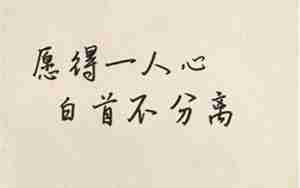 愿得一人心
白首不分离